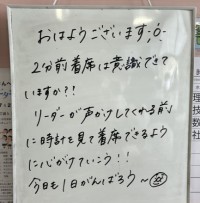 おはようございます
2分前着席は意識できて
いますか??
リーダーが声かけしてくれる前
に時計を見て着席できるよう
に心がけていこう!!
今日も1日がんばろう〜
理
技
数
社